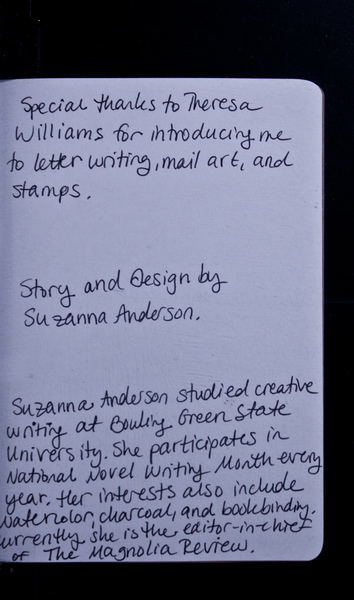 Special thanks to Theresa
Williams for introducing me
to letter writing, mail art, and
stamps.
Story and Design by
Suzanna Anderson.
Suzanna Anderson studied creative
writing at Bowling Green State
University. She participates in
National Novel Writing Month every
year. Her interests also include
watercolor, charcoal, and bookbinding.
Currently she is the editor-in-chief
of The Magnolia Review.